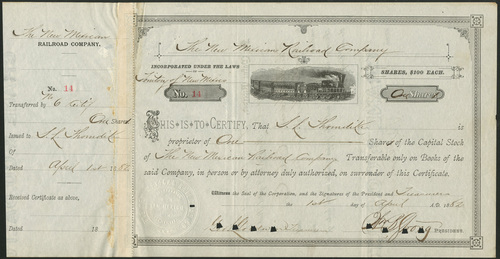 The New Mexican
RAILROAD COMPANY.
No. 14
Transferred by
One Shares
Issued to S. L. Thorndike
of
Dated April 1st 1882
Received Certificate as above,
Dated 18
The New Mexican Railroad Company
INCORPORATED UNDER THE LAWS
OF THE
Territory of New Mexico
SHARES, $100 EACH.
No. 14
One Share
THIS IS TO CERTIFY, That S. L. Thorndike is
proprietor of One Shares of the Capital Stock
of The New Mexican Railroad Company Transferable only on Books of the
said Company, in person or by attorney duly authorized, on surrender of this Certificate.
Witness the Seal of the Corporation, and the Signatures of the President and Treasurer
this 1st day of April A.D. 1882
PRESIDENT.